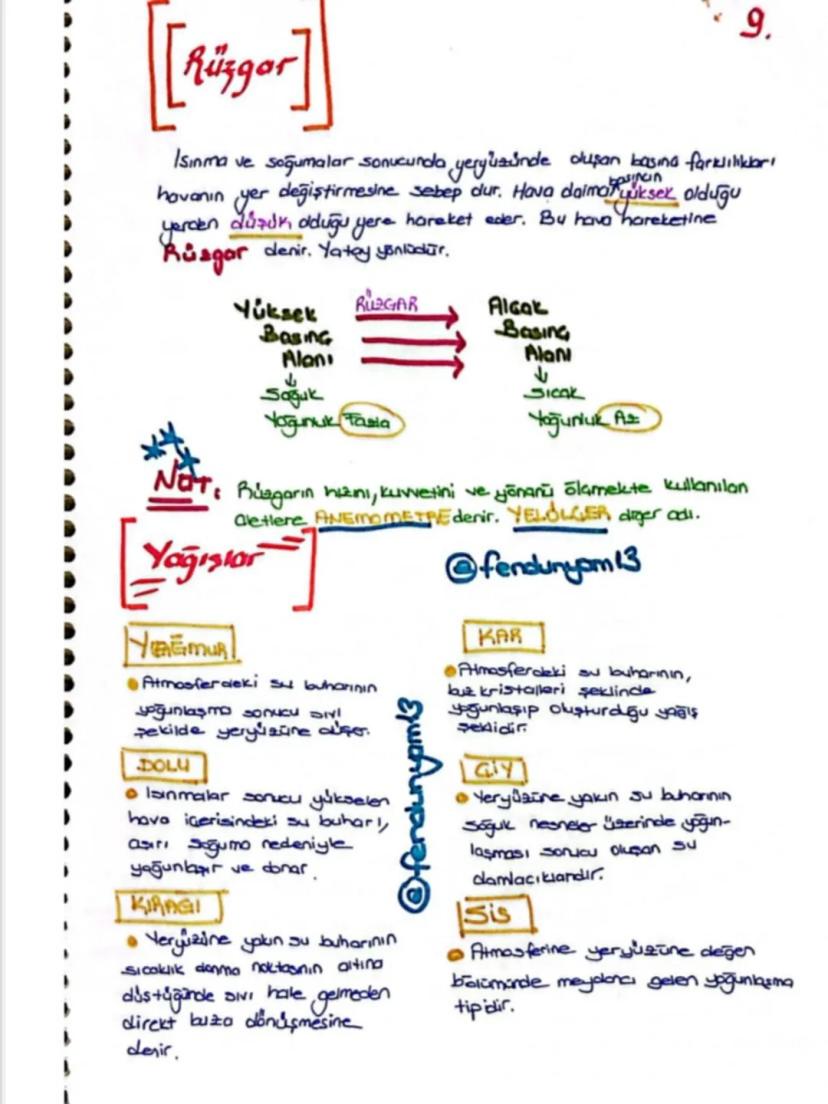 9.
Rüzgar
Isınma ve soğumalar sonucunda yeryüzünde oluşan basınç farklılıkları
havanın yer değiştirmesine sebep dur. Hava daima basıncın yüksek olduğu
yerden düşük olduğu yere hareket eder. Bu hava hareketine
Rüzgar denir. Yatay yönlüdür.
Yüksek RÜZGAR Alçak
Basınç Basınç
Alanı Alanı
Soğuk Sıcak
Yoğunluk Fazla Yoğunluk Az
Not: Rüzgarın hızını, kuvvetini ve yönünü ölçmekte kullanılan
aletlere ANEMOMETRE denir. YELÖLÇER diğer adı.
Yağışlar
@fendunyam13
YAĞMUR
Atmosferdeki su buharının
yoğunlaşma sonucu sıvı
şekilde yeryüzüne düşer.
DOLU
Isınmalar sonucu yükselen
hava içerisindeki su buharı,
aşırı soğuma nedeniyle
yoğunlaşır ve donar.
KIRAĞI
Yeryüzüne yakın su buharının
sıcaklık donma noktasının altına
düştüğünde sıvı hale gelmeden
direkt buza dönüşmesine
denir.
@fendunyam13
KAR
Atmosferdeki su buharının,
buz kristalleri şeklinde
yoğunlaşıp oluşturduğu yağış
şeklidir.
ÇİY
Yeryüzüne yakın su buharının
soğuk nesneler üzerinde yoğun-
laşması sonucu oluşan su
damlacıklarıdır.
SİS
Atmosferine yeryüzüne değen
bölümünde meydana gelen yoğunlaşma
tipidir.